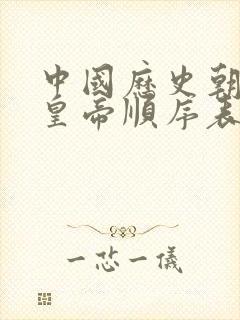 中國歷史朝
皇帝順序表
一芯一儀